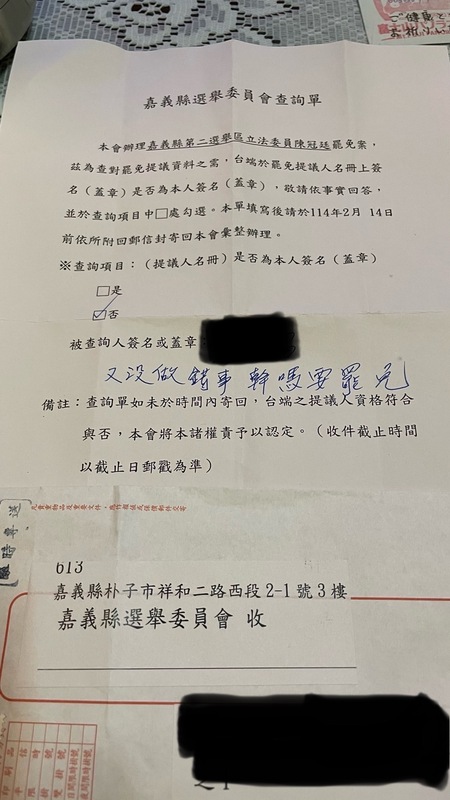 嘉義縣選舉委員會查詢單
本會辦理嘉義縣第二選舉區立法委員陳冠廷罷免案，
茲為查對罷免提議資料之需，台端於罷免提議人名冊上簽
名（蓋章）是否為本人簽名（蓋章），敬請依事實回答，
並於查詢項目中□處勾選。本單填寫後請於114年2月 14日
前依所附回郵信封寄回本會彙整辦理。
※查詢項目：（提議人名冊）是否為本人簽名（蓋章）
□是
☑否
被查詢人簽名或蓋章
又没做錯事 幹嗎要罷免
備註：查詢單如未於時間內寄回，台端之提議人資格符合
與否，本會將本諸權責予以認定。（收件截止時間
以截止日郵戳為準）
限時專送
613
嘉義縣朴子市祥和二路西段2-1號3樓
嘉義縣選舉委員會 收